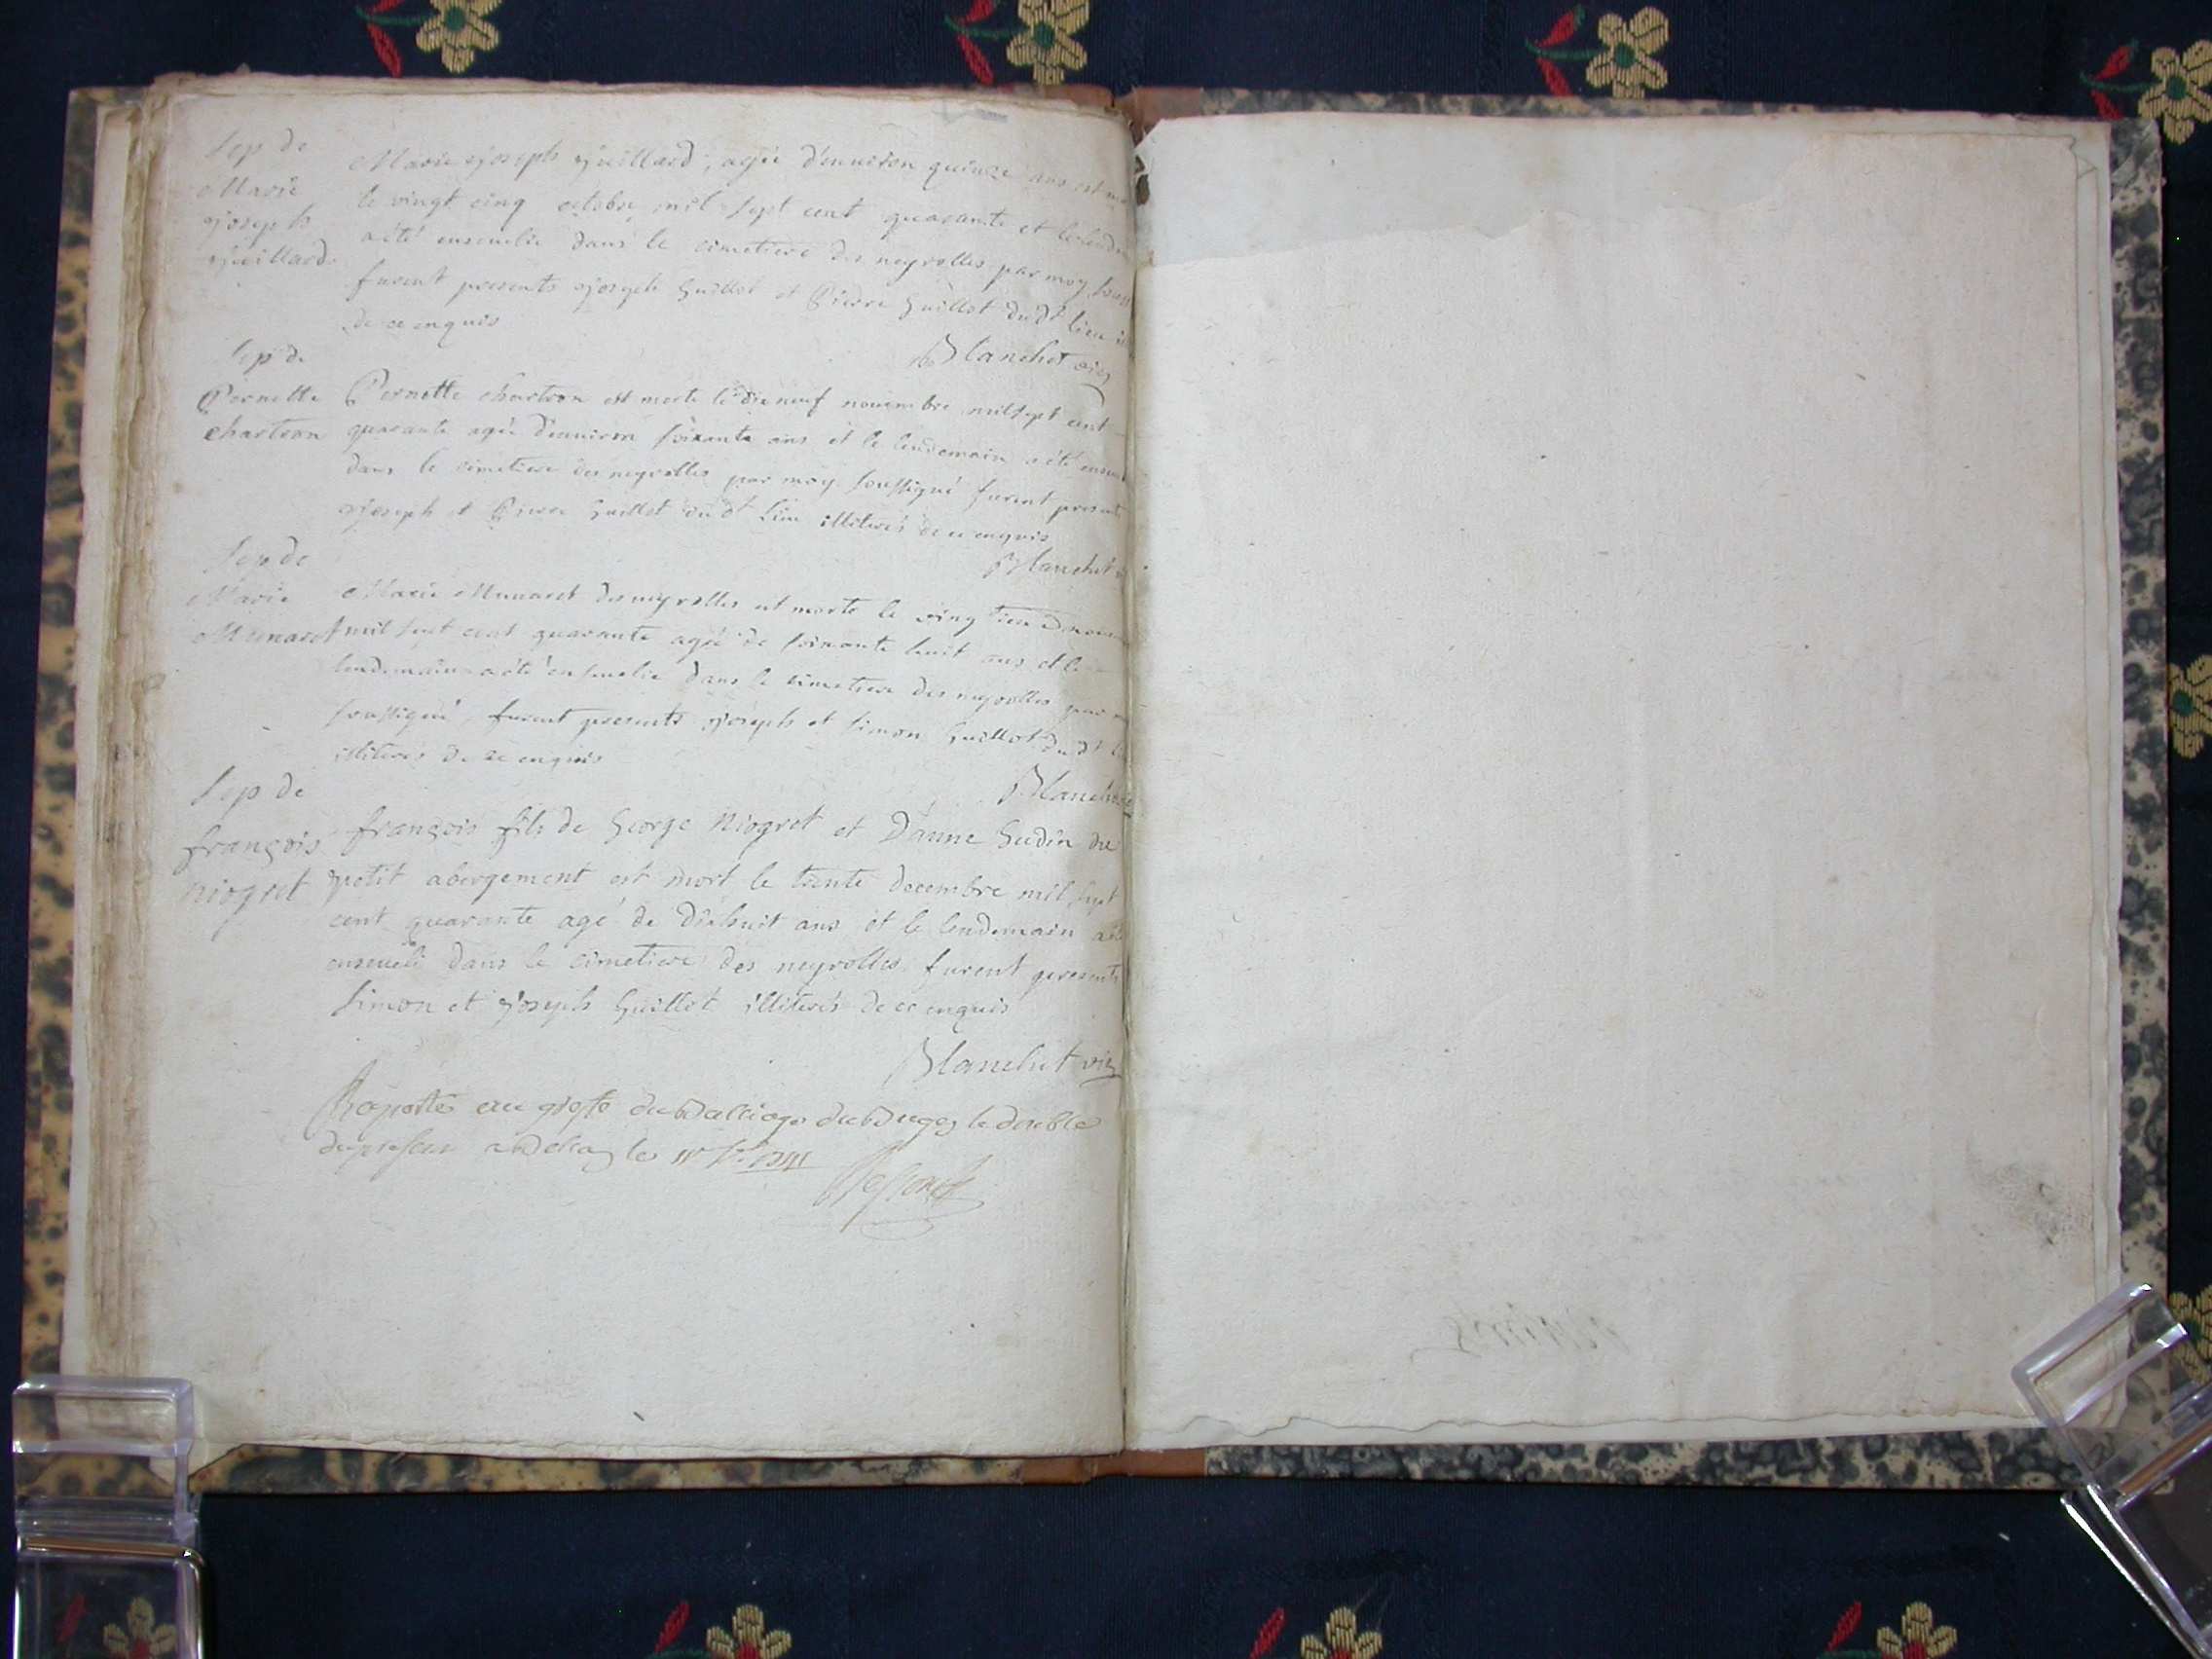 Sep de
Marie
joseph
juillard
Marie joseph juillard, agée d'environ quinze ans est
le vingt cinq octobre mil sept cent quarante et le
a été ensevelie dans le cimetiere des neyrolles par moy
furent presents joseph Guillot et Pierre Guillot dudt lieu
de ce enquis
Blanchet vic
Sep de
Pernette
chartron
Pernette chartron est morte le dix neuf novembre mil sept cent
quarante agée d'environ soixante ans et le lendemain a été
dans le cimetiere des neyrolles par moy soussigné furent present
joseph et Pierre Guillot dudt lieu illiterés de ce enquis
Blanchet
Sep de
Marie
Munaret
Marie Munaret des neyrolles est morte le vingtieme
mil sept cent quarante agée de soixante huit ans et le
lendemain a été ensevelie dans le cimetiere des neyrolles par
soussigné, furent presents joseph et simon Guillot dudt
illiterés de ce enquis
Blanchet
Sep de
françois
niogret
françois fils de George Niogret et D'anne Gudin du
petit abergement est mort le trente decembre mil sept
cent quarante agé de dixhuit ans et le lendemain a été
enseveli dans le cimetiere des neyrolles furent presents
simon et joseph Guillot illiterés de ce enquis
Blanchet vic
Raporté au grefe du Balliage du Bugey le double
du present a Belley le